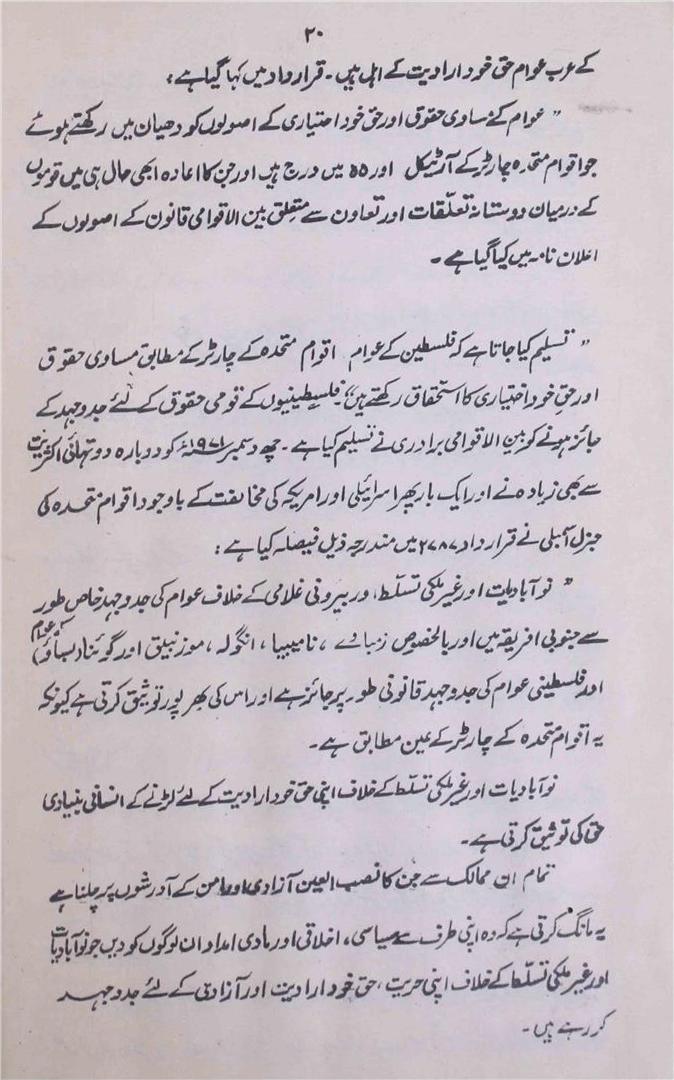 ۲۰
کے عرب عوام حق خود ارادیت کے اہل ہیں۔ قرارداد میں کہا گیا ہے:
” عوام کے مساوی حقوق اور حق خود اختیاری کے اصولوں کو دھیان میں رکھتے ہوئے
جو اقوام متحدہ چارٹر کے آرٹیکل اور ۵۵ میں درج ہیں اور جن کا اعادہ ابھی حال ہی میں قوموں
کے درمیان دوستانہ تعلّقات اور تعاون سے متعلق بین الاقوامی قانون کے اصولوں کے
اعلان نامہ میں کیا گیا ہے۔
” تسلیم کیا جاتا ہے کہ فلسطین کے عوام اقوام متحدہ کے چارٹر کے مطابق مساوی حقوق
اور حق خود اختیاری کا استحقاق رکھتے ہیں“۔ فلسطینیوں کے قومی حقوق کے لئے جدوجہد کے
جائز ہونے کو بین الاقوامی برادری نے تسلیم کیا ہے۔ چھ دسمبر ۱۹۷۱ء کو دوبارہ دو تہائی اکثریت
سے بھی زیادہ نے اور ایک بار پھر اسرائیلی اور امریکہ کی مخالفت کے باوجود اقوام متحدہ کی
جنرل آمبلی نے قرارداد ۲۷۸۷ میں مندرجہ ذیل فیصلہ کیا ہے:
” نوآبادیات اور غیر ملکی تسلّط، ور بیرونی غلامی کے خلاف عوام کی جدوجہد خاص طور
سے جنوبی افریقہ میں اور بالخصوص زمبابوے ، نامیبیا ، انگولہ ، موزنبیق اور گوئنا (بساؤ) کے عوام
اور فلسطینی عوام کی جدوجہد قانونی طور پر جائز ہے اور اس کی بھرپور توثیق کرتی ہے کیونکہ
یہ اقوام متحدہ کے چارٹر کے عین مطابق ہے۔
نوآبادیات اور غیر ملکی تسلّط کے خلاف اپنی حق خود ارادیت کے لئے لڑنے کے انسانی بنیادی
حق کی توثیق کرتی ہے۔
تمام ان ممالک سے جن کا نصب العین آزادی اور امن کے آدرشوں پر چلنا ہے
یہ مانگ کرتی ہے کہ وہ اپنی طرف سے سیاسی، اخلاقی اور مادی امداد ان لوگوں کو دیں جو نوآبادیات
اور غیر ملکی تسلّط کے خلاف اپنی حریت ، حق خود ارادیت اور آزادی کے لئے جدوجہد
کر رہے ہیں۔